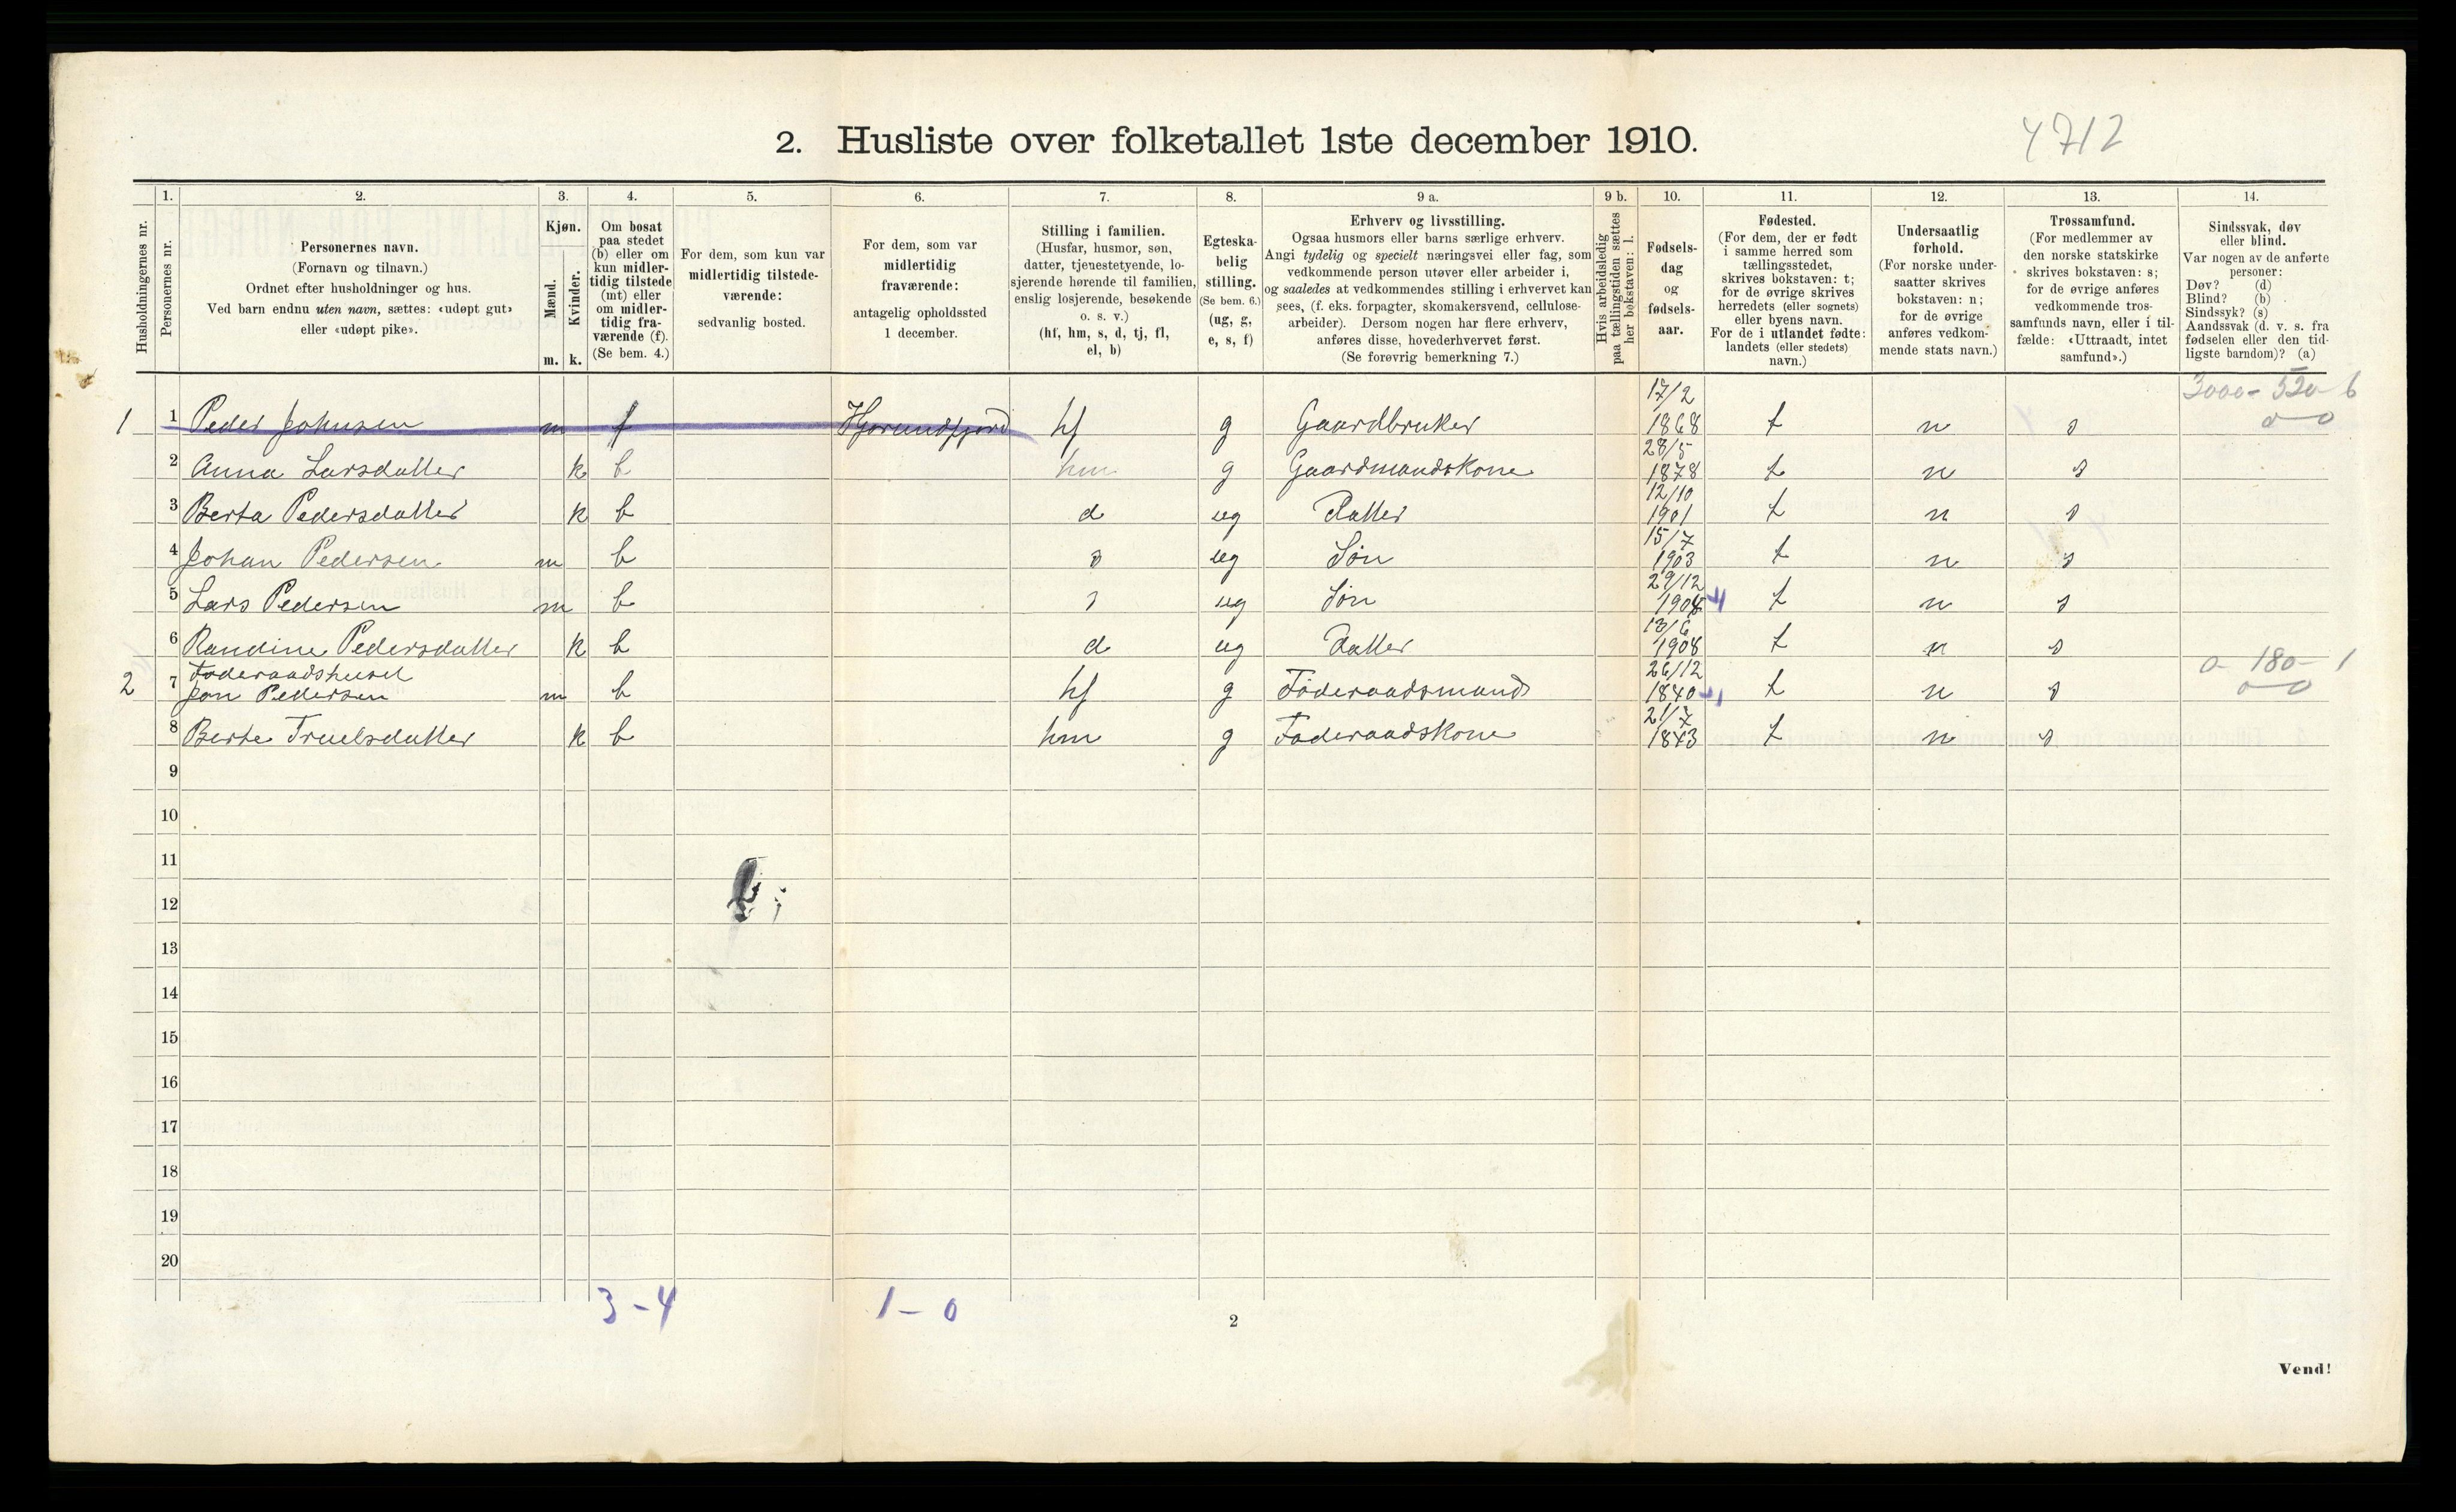 4712
2. Husliste over folketallet 1ste december 1910.
1. 2. 3. 4. 5. 6. 7. 8. 9 a. 9 b. 10. 11. 12. 13. 14.
Husholdningernes nr.
Personernes nr.
Personernes navn.
(Fornavn og tilnavn.)
Ordnet efter husholdninger og hus.
Ved barn endnu uten navn, sættes: «udøpt gut»
eller «udøpt pike».
Kjøn.
Mænd.
Kvinder.
m. k.
Om bosat
paa stedet
(b) eller om
kun midler-
tidig tilstede
(mt) eller
om midler-
tidig fra-
værende (f).
(Se bem. 4.)
For dem, som kun var
midlertidig tilstede-
værende:
sedvanlig bosted.
For dem, som var
midlertidig
fraværende:
antagelig opholdssted
1 december.
Stilling i familien.
(Husfar, husmor, søn,
datter, tjenestetyende, lo-
sjerende hørende til familien,
enslig losjerende, besøkende
o. s. v.)
(hf, hm, s, d, tj, fl,
el, b)
Egteska-
belig
stilling.
(Se bem. 6.)
(ug, g,
e, s, f)
Erhverv og livsstilling.
Ogsaa husmors eller barns særlige erhverv.
Angi tydelig og specielt næringsvei eller fag, som
vedkommende person utøver eller arbeider i,
og saaledes at vedkommendes stilling i erhvervet kan
sees, (f. eks. forpagter, skomakersvend, cellulose-
arbeider). Dersom nogen har flere erhverv,
anføres disse, hovederhvervet først.
(Se forøvrig bemerkning 7.)
Hvis arbeidsledig
paa tællingstiden sættes
her bokstaven: l.
Fødsels-
dag
og
fødsels-
aar.
Fødested.
(For dem, der er født
i samme herred som
tællingsstedet,
skrives bokstaven: t;
for de øvrige skrives
herredets (eller sognets)
eller byens navn.
For de i utlandet fødte:
landets (eller stedets)
navn.)
Undersaatlig
forhold.
(For norske under-
saatter skrives
bokstaven: n;
for de øvrige
anføres vedkom-
mende stats navn.)
Trossamfund.
(For medlemmer av
den norske statskirke
skrives bokstaven: s;
for de øvrige anføres
vedkommende tros-
samfunds navn, eller i til-
fælde: «Uttraadt, intet
samfund».)
Sindssvak, døv
eller blind.
Var nogen av de anførte
personer:
Døv? (d)
Blind? (b)
Sindssyk? (s)
Aandssvak (d. v. s. fra
fødselen eller den tid-
ligste barndom)? (a)
3000- 520- 6
0-0
1 1 Peder Johnsen m f Hjørundfjord hf g Gaardbruker 17/2 1868 t n s
2 Anna Larsdatter k b hm g Gaardmandskone 28/5 1878 t n s
3 Berta Pedersdatter k b d ug Datter 12/10 1901 t n s
4 Johan Pedersen m b s ug Søn 15/7 1903 t n s
5 Lars Pedersen m b s ug Søn 29/12 1904 4 t n s
6 Randine Pedersdatter k b d ug Datter 13/6 1908 t n s
Föderaadshuset
2 7 Jon Pedersen m b hf g Föderaadsmand 26/12 1840 t n s
0- 180- 1
0-0
8 Berte Truelsdatter k b hm g Føderaadskone 21/7 1843 t n s
9
10
11
12
13
14
15
16
17
18
19
20
3-4 1-0
2
Vend!